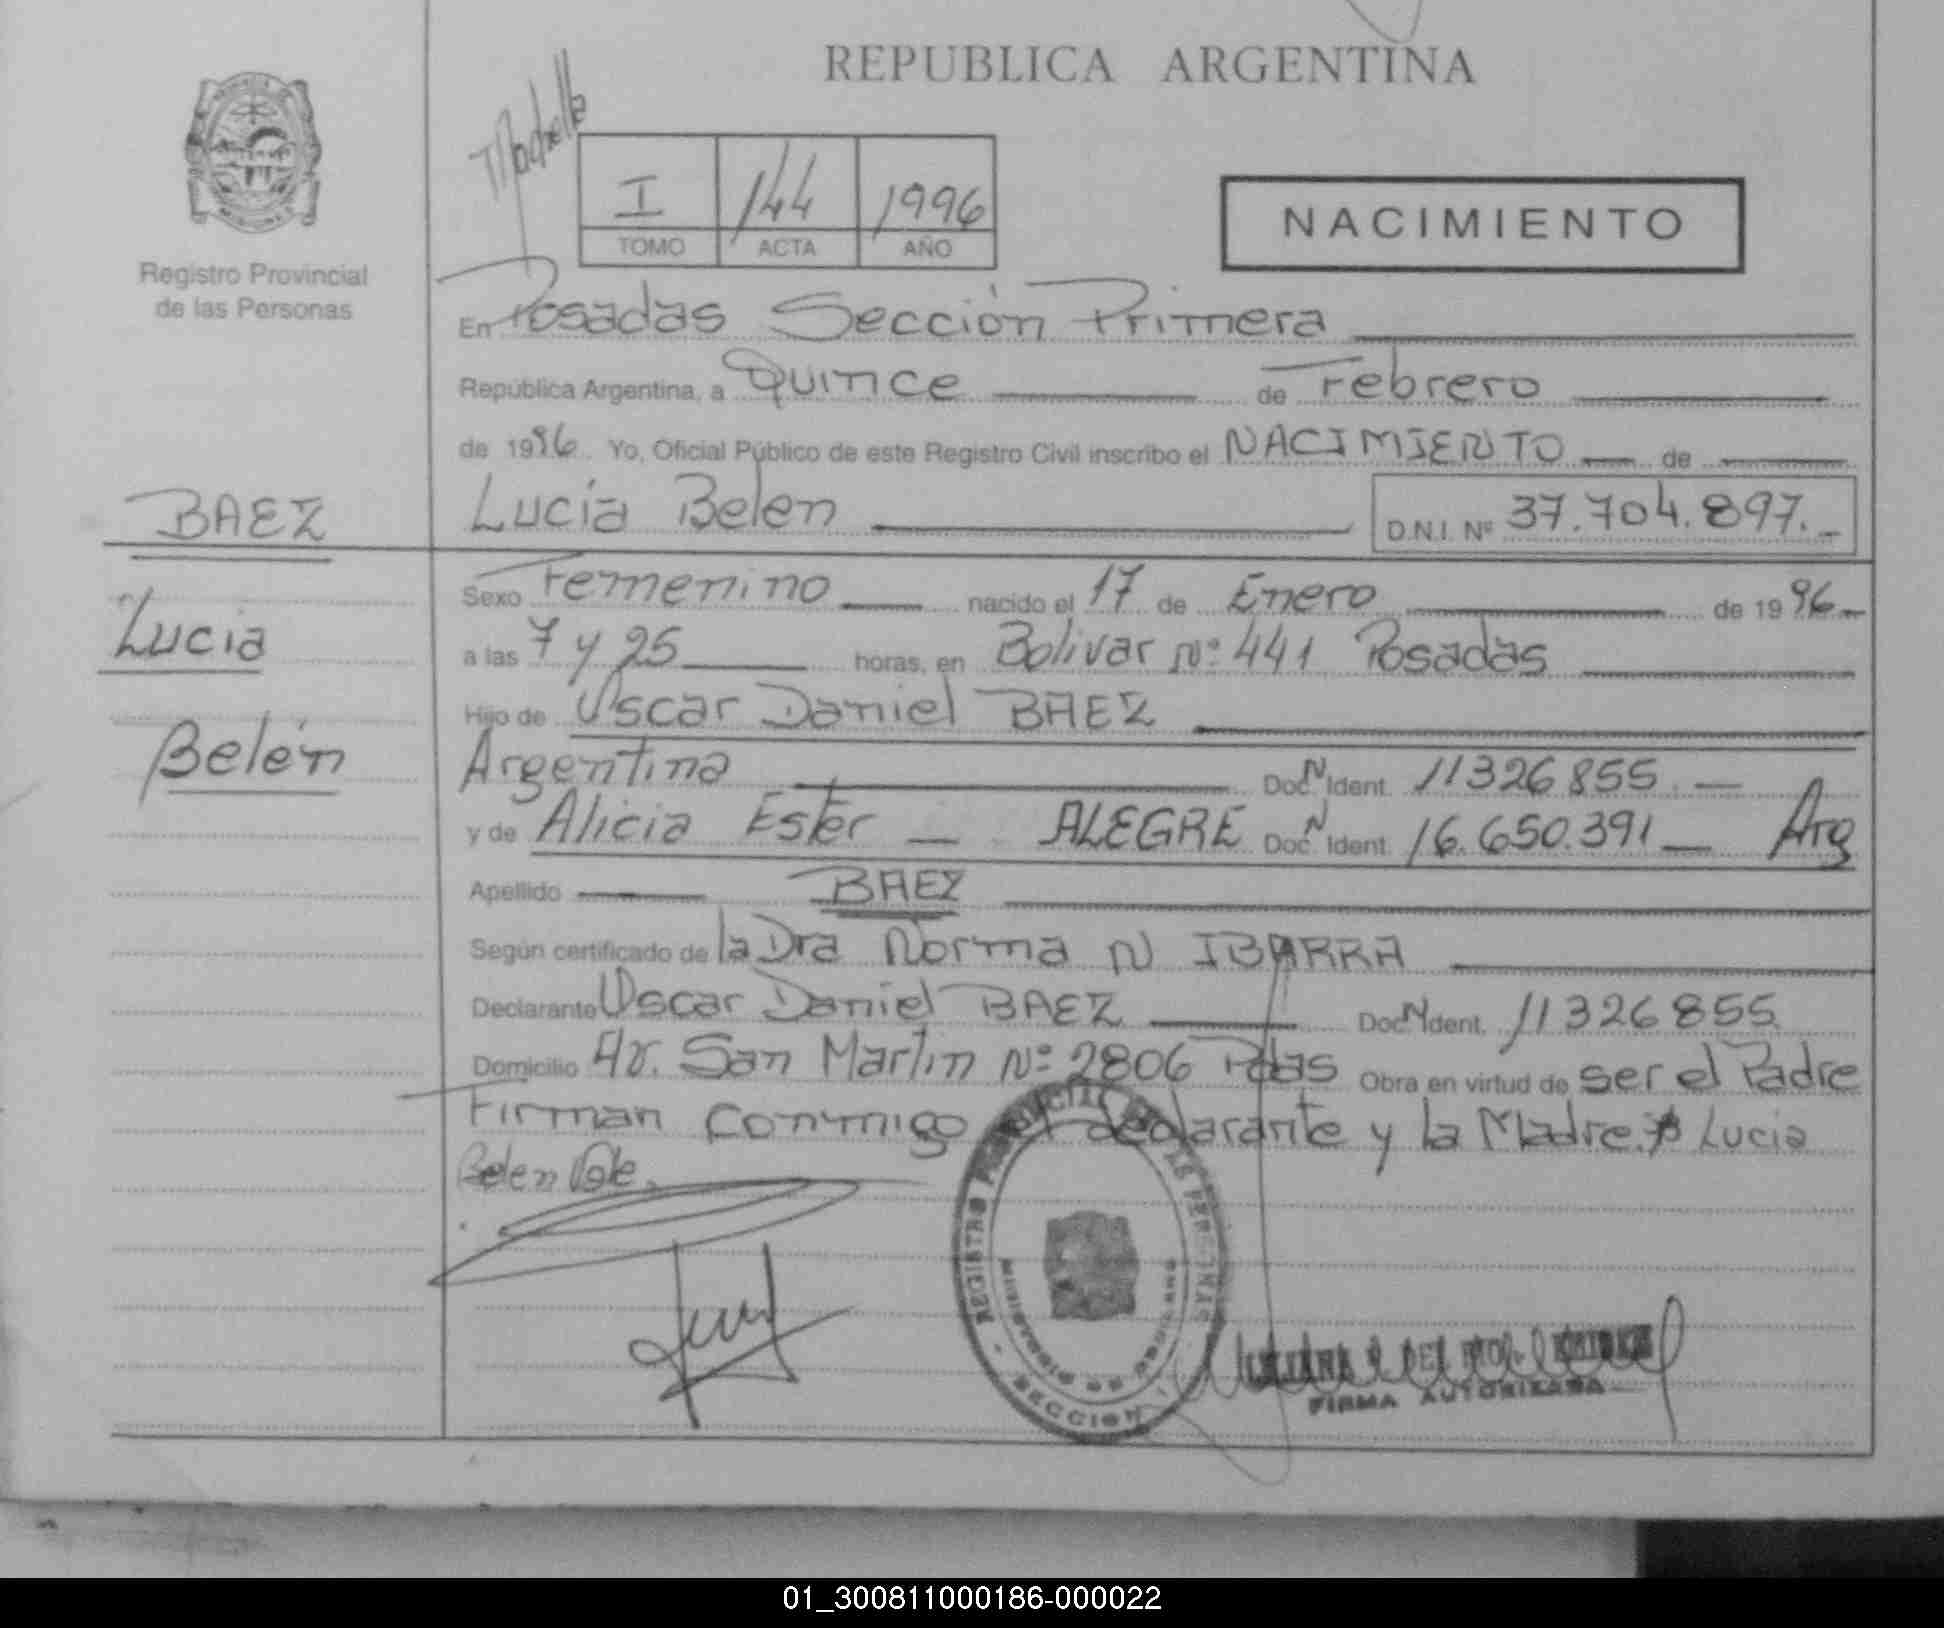 REPUBLICA ARGENTINA
Registro Provincial
de las Personas
I 144 1996
TOMO ACTA AÑO
NACIMIENTO
En Posadas Sección Primera
República Argentina, a Quince de Febrero
de 1996. Yo, Oficial Público de este Registro Civil inscribo el NACIMIENTO de
BAEZ
Lucía Belén
Lucia Belen
D.N.I. Nº 37.704.897.-
Sexo Femenino nacido el 17 de Enero de 1996
a las 7 y 25 horas, en Bolivar Nº 441 Posadas
Hijo de Oscar Daniel BAEZ
Argentina Doc. N Ident. 11326855.-
y de Alicia Ester - ALEGRE Doc. N Ident. 16.650.391 - Arg
Apellido BAEZ
Según certificado de la Dra Norma N IBARRA
Declarante Oscar Daniel BAEZ Doc. N Ident. 11326855
Domicilio Av. San Martin Nº 2806 Pdas Obra en virtud de ser el Padre
Firman conmigo el declarante y la Madre. Lucia
Belen Vale.
REGISTRO PROVINCIAL DE LAS PERSONAS
MINISTERIO DE GOBIERNO
SECCION 1
FIRMA AUTORIZADA
01_300811000186-000022